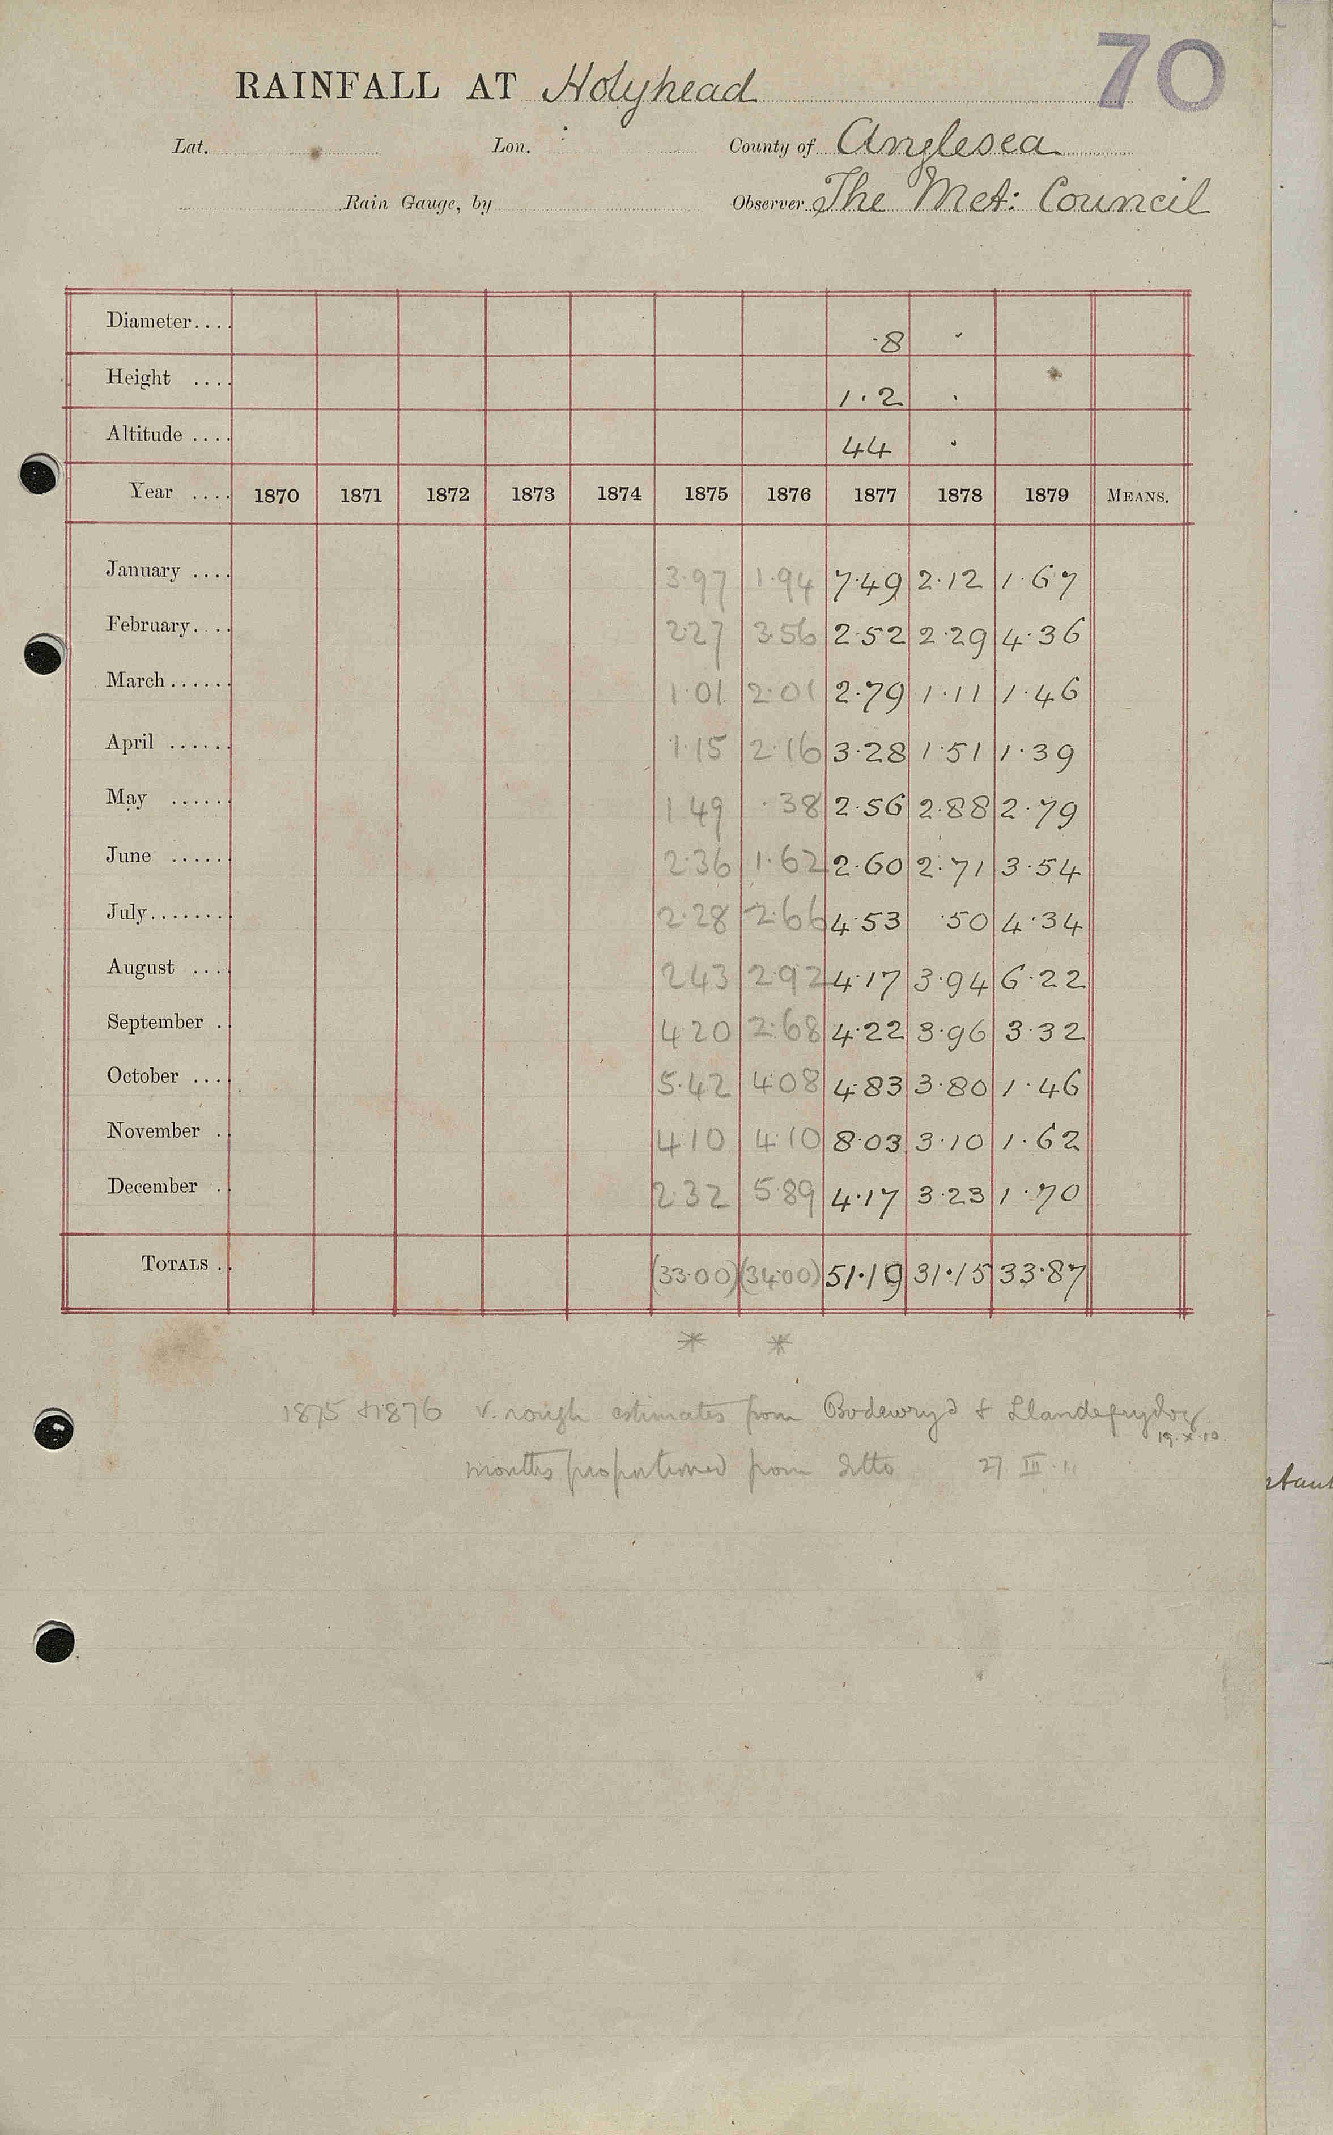 70
RAINFALL AT Holyhead
Lat. Lon. County of Anglesea
Rain Gauge, by Observer The Met: Council
Diameter.... 8 .
Height .... 1.2 .
Altitude .... 44 .
Year .... 1870 1871 1872 1873 1874 1875 1876 1877 1878 1879 MEANS.
January .... 3.97 1.94 7.49 2.12 1.67
February.... 2.27 3.56 2.52 2.29 4.36
March...... 1.01 2.01 2.79 1.11 1.46
April ...... 1.15 2.16 3.28 1.51 1.39
May ...... 1.49 .38 2.56 2.88 2.79
June ...... 2.36 1.62 2.60 2.71 3.54
July........ 2.28 2.66 4.53 .50 4.34
August .... 2.43 2.92 4.17 3.94 6.22
September .. 4.20 2.68 4.22 3.96 3.32
October .... 5.42 4.08 4.83 3.80 1.46
November .. 4.10 4.10 8.03 3.10 1.62
December .. 2.32 5.89 4.17 3.23 1.70
TOTALS .. (33.00) (34.00) 51.19 31.15 33.87
* *
1875 & 1876 v. rough estimates from Bodewryd & Llandyfrydog
19.X.10
months proportioned from ditto 27 III.11